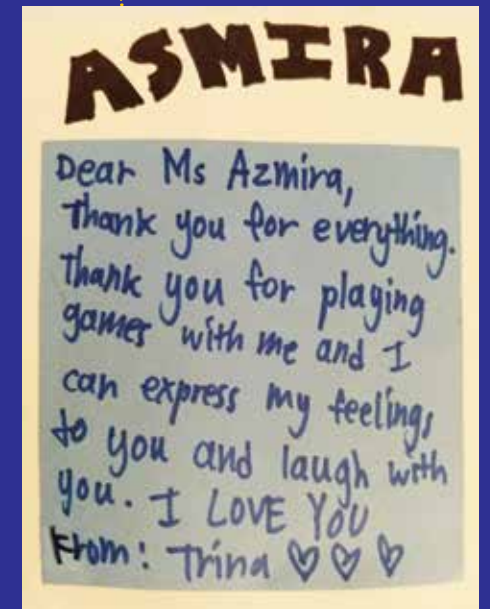 ASMIRA
Dear Ms Azmira,
Thank you for everything.
Thank you for playing
games with me and I
can express my feelings
to you and laugh with
you. I LOVE YOU
From: Trina ♡ ♡ ♡